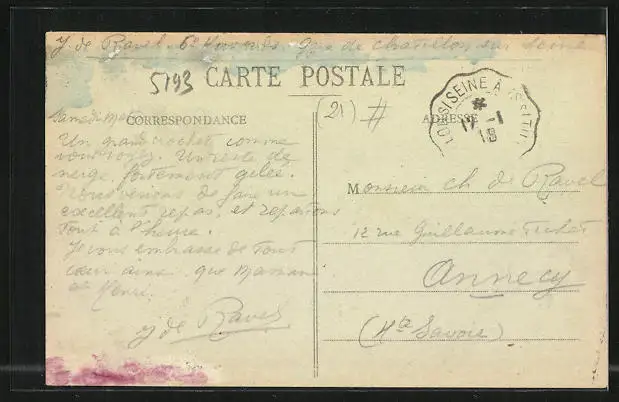 J. de Ravel 6e Hussards Gare de Chatillon sur Seine
5193
CARTE POSTALE
(21) #
CORRESPONDANCE
ADRESSE
SEINE À
17 -1
18
Samedi
Un grand crochet comme
vous voyez. Un reste de
neige, fortement gelée.
Nous venons de faire un
excellent repas, et repartons
tout à l'heure.
Je vous embrasse de tout
cœur ainsi que Maman
et Henri.
J de Ravel
Monsieur Ch de Ravel
12 rue Guillaume Fichet
Annecy
(Hte Savoie)